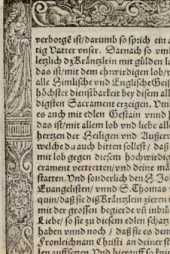 verborgē ist/darumb so sprich ein
tig Vatter vnser. Darnach so vm
letzlich dz Kräntzlein mit gülden la
das ist/mit dem ehrwirdigen lob/
alle Himlische vnd Englische Gei
höchster dienstbarkeit bey disem al
digisten Sacrament erzeigen. Vn
es auch mit edlen Gestain vnnd
das ist/mit allem lob vnd liebe all
hertzen der Heiligen vnd Ausser
welche du auch bitten sollest/ daß
mit lob gegen diesem hochwirdig
crament vertretten/vnd deine mä
statten. Vnd sonderlich den S. Jo
Euangelisten/ vnnd S. Thomas
quin/daß sie diß Kräntzlein zieren
mit der grossen begierde vñ inbrü
Liebe/ so sie zu diesem edlen schatz
haben vnnd noch / daß sie es den
Fronleichnam Christi an deiner sta